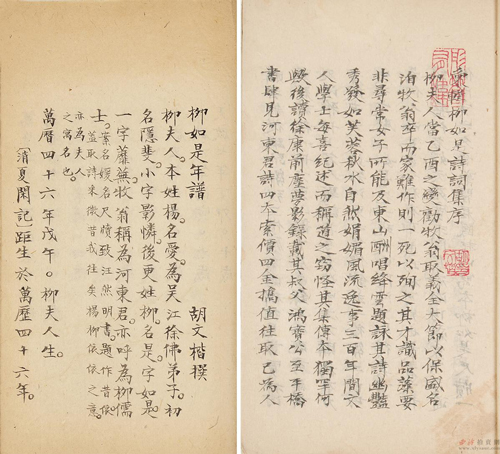 柳如是詩詞集序
柳夫人當乙酉之變勸牧翁取義全大節以保盛名
洎牧翁卒而家難作則一死以殉之其才識品藻要
非尋常女子所能及東山酬唱絳雲題詠其詩幽豔
秀發如芙蓉秋水自然娟媚風流逸宕三百年間文
人學士每喜紀述而稱道之竊怪其集傳本獨罕何
歟後讀徐康前塵夢影錄載其叔父鴻寶公至平橋
書肆見河東君詩四本索價四金攜值往取已為人
柳如是年譜 胡文楷撰
柳夫人。本姓楊。名愛。為吳江徐佛弟子。初
名隱斐。小字影憐。後更姓柳。名是。字如是
一字蘼蕪。牧翁稱為河東君。亦呼為柳儒
士。
案名媛尺牘致汪然明書題作昔依。
蓋取詩采薇昔我往矣楊柳依依之意。
亦為夫人
之寓名也。
萬曆四十六年戊午。柳夫人生。
「清夏閑記」距生於萬曆四十六年。